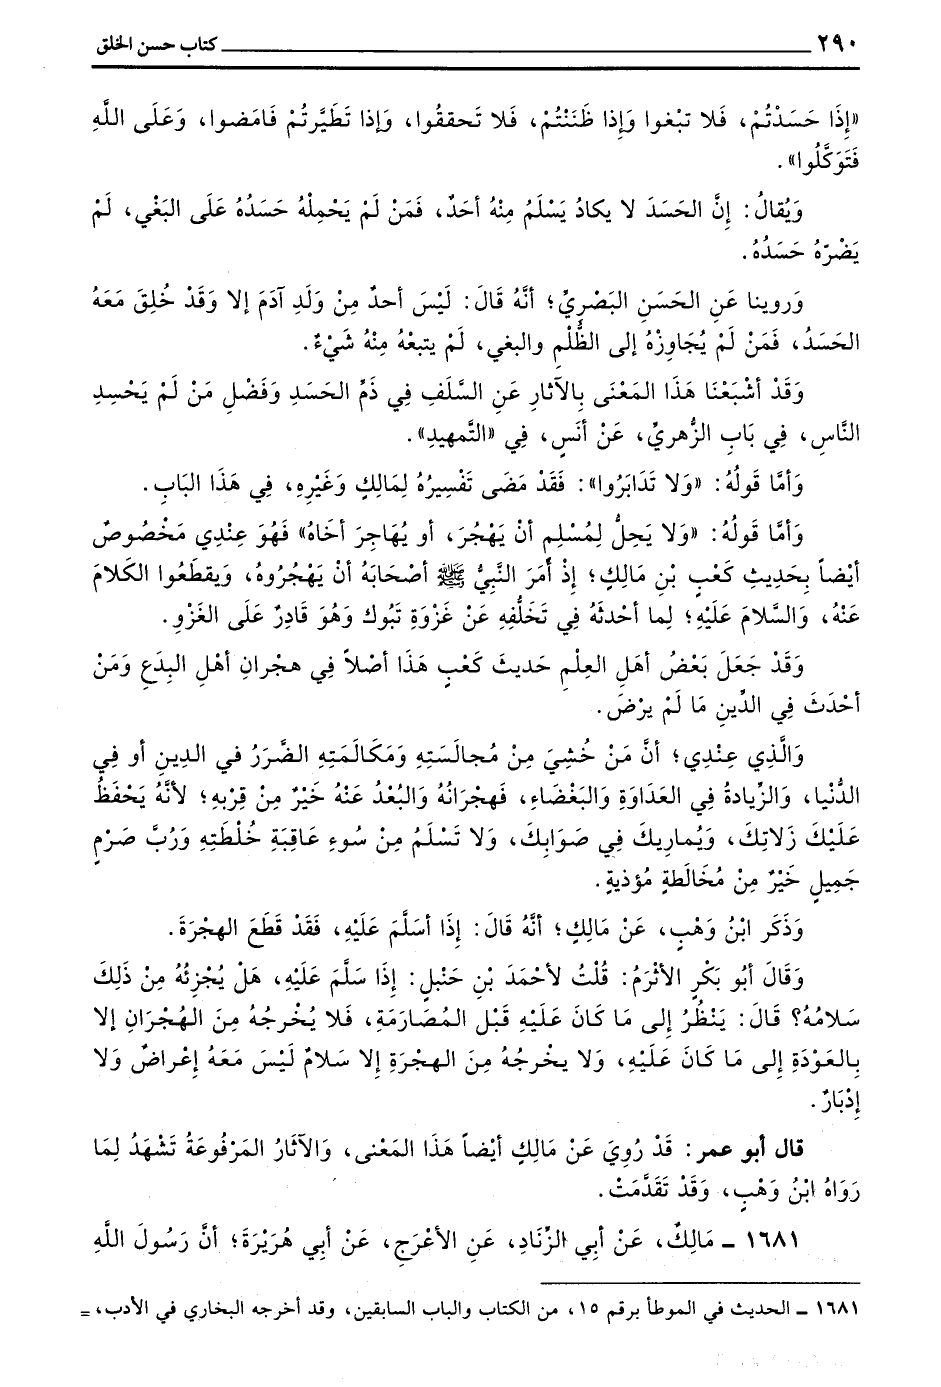 ٢٩٠ ــــــــــــــــــــ كتاب حسن الخلق
«إِذَا حَسَدْتُمْ، فَلا تبْغوا وَإِذا ظَنَنْتُمْ، فَلا تَحققُوا، وَإذا تَطَيَّرتُمْ فَامَضوا، وَعَلَى اللَّهِ
فَتَوَكَّلُوا».
وَيُقالُ: إِنَّ الحَسَدَ لا يكادُ يَسْلَمُ مِنْهُ أحَدٌ، فَمَنْ لَمْ يَحْمِلْهُ حَسَدُهُ عَلَى البَغْي، لَمْ
يَضْرّهُ حَسَدُهُ.
وَروينا عَنِ الحَسَنِ البَصْرِيِّ؛ أنَّهُ قَالَ: لَيْسَ أحدٌ مِنْ وَلَدِ آدَمَ إلا وَقَدْ خُلِقَ مَعَهُ
الحَسَدُ، فَمَنْ لَمْ يُجَاوِزْهُ إلى الظُّلْمِ والبغي، لَمْ يتبعْهُ مِنْهُ شَيْءٌ.
وَقَدْ أشْبَعْنَا هَذَا المَعْنَى بِالآثارِ عَنِ السَّلَفِ فِي ذَمِّ الحَسَدِ وَفَضْلِ مَنْ لَمْ يَحْسِدِ
النَّاسِ، فِي بَابِ الزُّهريِّ، عَنْ أنَسٍ، فِي «التَّمهيدِ».
وَأمَّا قَولُهُ: «وَلا تَدَابَرُوا»: فَقَدْ مَضَى تَفْسِيرُهُ لِمَالِكٍ وَغَيْرِهِ، فِي هَذَا البَابِ.
وَأمَّا قَولُهُ: «وَلا يَحِلُّ لِمُسْلِمٍ أنْ يَهْجُرَ، أو يُهَاجِرَ أخَاهُ» فَهُوَ عِنْدِي مَخْصُوصٌ
أيْضاً بِحَدِيثِ كَعْبِ بْنِ مَالِكٍ؛ إذْ أَمَرَ النَّبِيُّ ﷺ أصْحَابَهُ أنْ يَهْجُرُوهُ، وَيقطَعُوا الكَلامَ
عَنْهُ، وَالسَّلامَ عَلَيْهِ؛ لِما أحْدثَهُ فِي تَخَلُّفِهِ عَنْ غَزْوَةِ تَبُوك وَهُوَ قَادِرٌ عَلَى الغَزْوِ.
وَقَدْ جَعَلَ بَعْضُ أهَلِ العِلْمِ حَديثَ كَعْبٍ هَذَا أصْلاً فِي هجْرانِ أهْلِ البِدَعِ وَمَنْ
أحْدَثَ فِي الدِّينِ مَا لَمْ يرْضَ.
وَالَّذِي عِنْدِي؛ أنَّ مَنْ خُشِيَ مِنْ مُجالَسَتِهِ وَمَكَالَمَتِهِ الضَّرَرُ في الدِينِ أو فِي
الدُّنْيا، وَالزِّيادةُ فِي العَدَاوَةِ وَالبَغْضَاءِ، فَهجْرَانُهُ وَالبُعْدُ عَنْهُ خَيْرٌ مِنْ قِرْبهِ؛ لأنَّهُ يَحْفَظُ
عَلَيْكَ زَلاتِكَ، وَيُماريكَ فِي صَوَابِكَ، وَلا تَسْلَمُ مِنْ سُوءِ عَاقِبَةِ خُلْطَتِهِ وَرُبَّ صَرْمٍ
جَمِيلٍ خَيْرٌ مِنْ مُخَالَطةٍ مُؤذيةٍ.
وَذَكَر ابْنُ وَهْبٍ، عَنْ مَالِكٍ؛ أنَّهُ قَالَ: إذَا أسَلَّمَ عَلَيْهِ، فَقَدْ قَطَعَ الهجْرَةَ.
وَقَالَ أبُو بَكْرٍ الأثْرَمُ: قُلْتُ لأحْمَدَ بْنِ حَنْبلٍ: إذَا سَلَّمَ عَلَيْهِ، هَلْ يُجْزِئُهُ مِنْ ذَلِكَ
سَلامُهُ؟ قَالَ: يَنْظُرُ إلى مَا كَانَ عَلَيْهِ قَبْلَ المُصَارَمَةِ، فَلا يُخْرجُهُ مِنَ الهُجْرَانِ إلا
بِالعَوْدَةِ إلى مَا كَانَ عَلَيْهِ، وَلا يخْرجُهُ مِنَ الهجْرَةِ إلا سَلامٌ لَيْسَ مَعَهُ إعْراضٌ وَلا
إدْبَارٌ.
قال أبو عمر: قَدْ رُوِيَ عَنْ مَالِكٍ أيْضاً هَذَا المَعْنى، وَالآثارُ المَرْفُوعَةُ تَشْهَدُ لِمَا
رَوَاهُ ابْنُ وَهْبٍ، وَقَدْ تَقَدَّمَتْ.
١٦٨١ ـ مَالِكٌ، عَنْ أبي الزِّنَادِ، عَنِ الأعْرَجِ، عَنْ أبي هُرَيْرَةَ؛ أنَّ رَسُولَ اللَّهِ
١٦٨١ ـ الحديث في الموطأ برقم ١٥، من الكتاب والباب السابقين، وقد أخرجه البخاري في الأدب، =